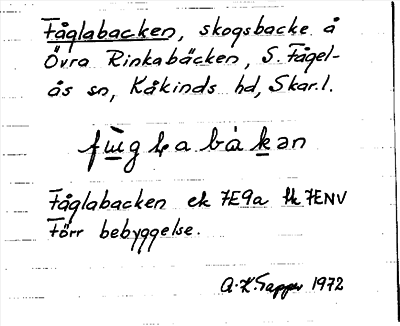 Fåglabacken, skogsbacke å
Övra Rinkabäcken, S. Fågel-
ås sn, Kåkinds hd, Skar.l.
Fåglabacken ek 7E9a tk 7ENV
Förr bebyggelse.
A.K. 1972